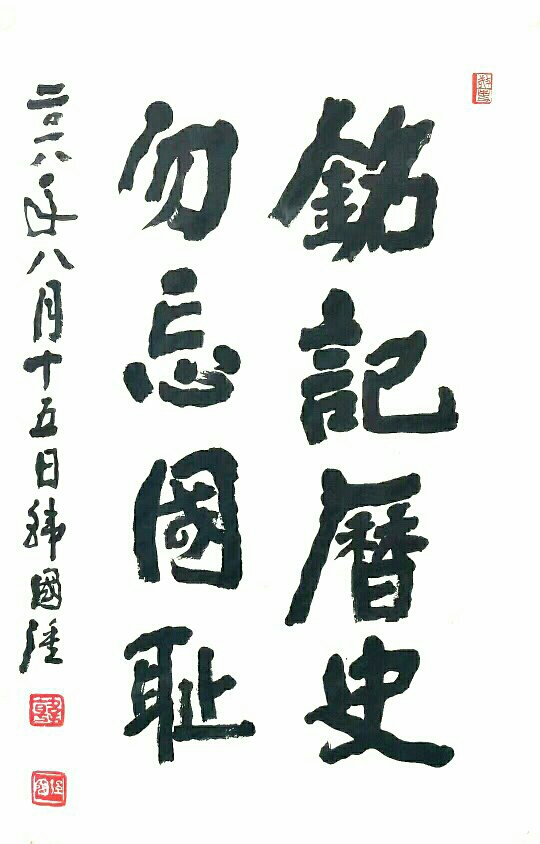 銘記曆史
勿忘國恥
二〇一八年八月十五日韩國